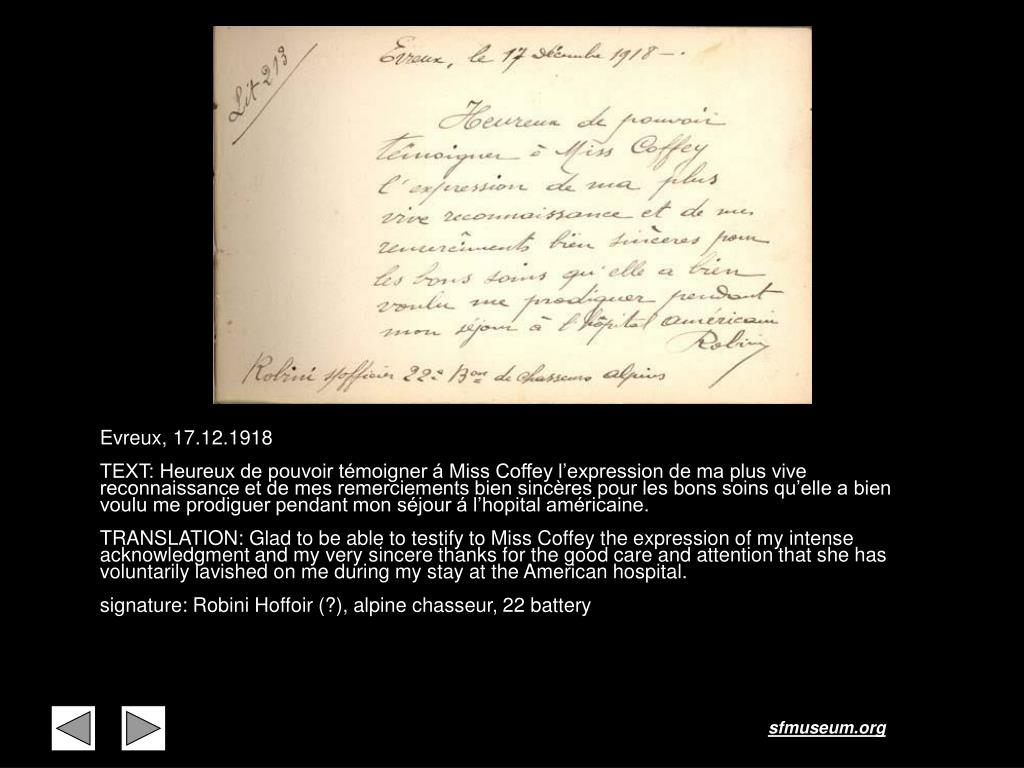 Lit 213
Evreux, le 17 Décembre 1918 –.
Heureux de pouvoir
témoigner à Miss Coffey
l'expression de ma plus
vive reconnaissance et de mes
remerciements bien sincères pour
les bons soins qu'elle a bien
voulu me prodiguer pendant
mon séjour à l'hôpital américain
Robini
Robini s/officier 22e Bon de chasseurs alpins
Evreux, 17.12.1918
TEXT: Heureux de pouvoir témoigner á Miss Coffey l’expression de ma plus vive
reconnaissance et de mes remerciements bien sincères pour les bons soins qu’elle a bien
voulu me prodiguer pendant mon séjour á l’hopital américaine.
TRANSLATION: Glad to be able to testify to Miss Coffey the expression of my intense
acknowledgment and my very sincere thanks for the good care and attention that she has
voluntarily lavished on me during my stay at the American hospital.
signature: Robini Hoffoir (?), alpine chasseur, 22 battery
sfmuseum.org